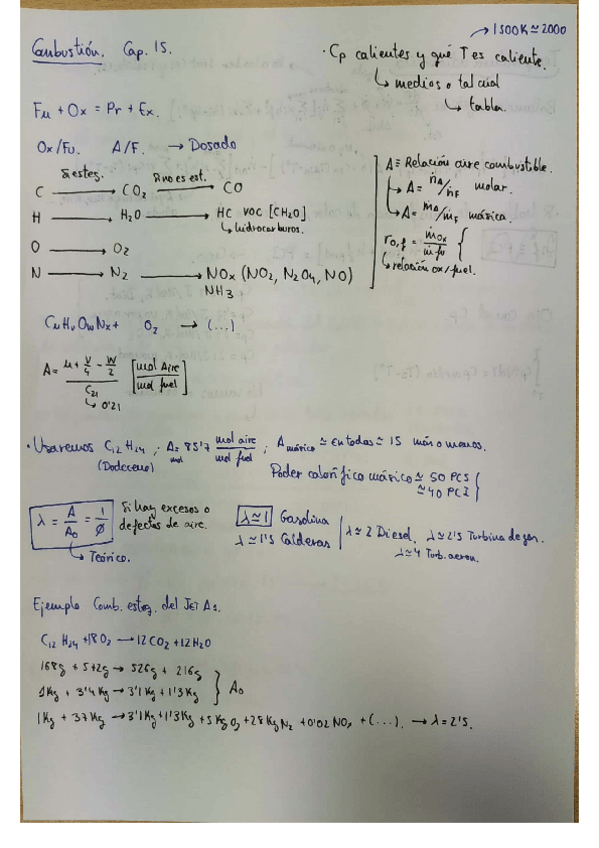 → 1500K ≃ 2000
Combustión. Cap. 15.
· Cp calientes y qué T es caliente.
↳ medios o tal cual
↳ tabla.
Fu + Ox = Pr + Ex.
Ox/Fu. A/F. → Dosado
Si esteq. Si no es est.
C → CO2 → CO
H → H2O → HC VOC [CH2O]
↳ hidrocarburos.
O → O2
N → N2 → NOx (NO2, N2O4, NO)
NH3
A ≡ Relación aire combustible.
↳ A = ṅA/ṅF molar.
↳ A = ṁA/ṁF másica.
ro,f = ṁox/ṁfu {
↳ relación ox/fuel.
CuHvOwNx + O2 → (...)
A = (u + v/4 - w/2)/C21 [mol Aire/mol fuel]
↳ 0'21
· Usaremos C12H24 ; A mol = 85'7 mol aire/mol fuel ; A másico ≃ en todas ≃ 15 más o menos.
(Dodeceno)
Poder calorífico másico ≃ 50 PCS
≃ 40 PCI
λ = A/A0 = 1/Ø
↳ Teórico.
Si hay excesos o
defectos de aire.
λ ≃ 1 Gasolina
λ ≃ 1'5 Calderas
λ ≃ 2 Diesel. λ ≃ 2'5 Turbina de gas.
λ ≃ 4 Turb. aeron.
Ejemplo Comb. esteq. del JET A1.
C12H24 + 18O2 → 12CO2 + 12H2O
168g + 572g → 526g + 216g
1Kg + 3'4Kg → 3'1Kg + 1'3Kg } A0
1Kg + 37Kg → 3'1Kg + 1'3Kg + 5KgO2 + 28KgN2 + 0'02 NOx + (...). → λ = 2'5.